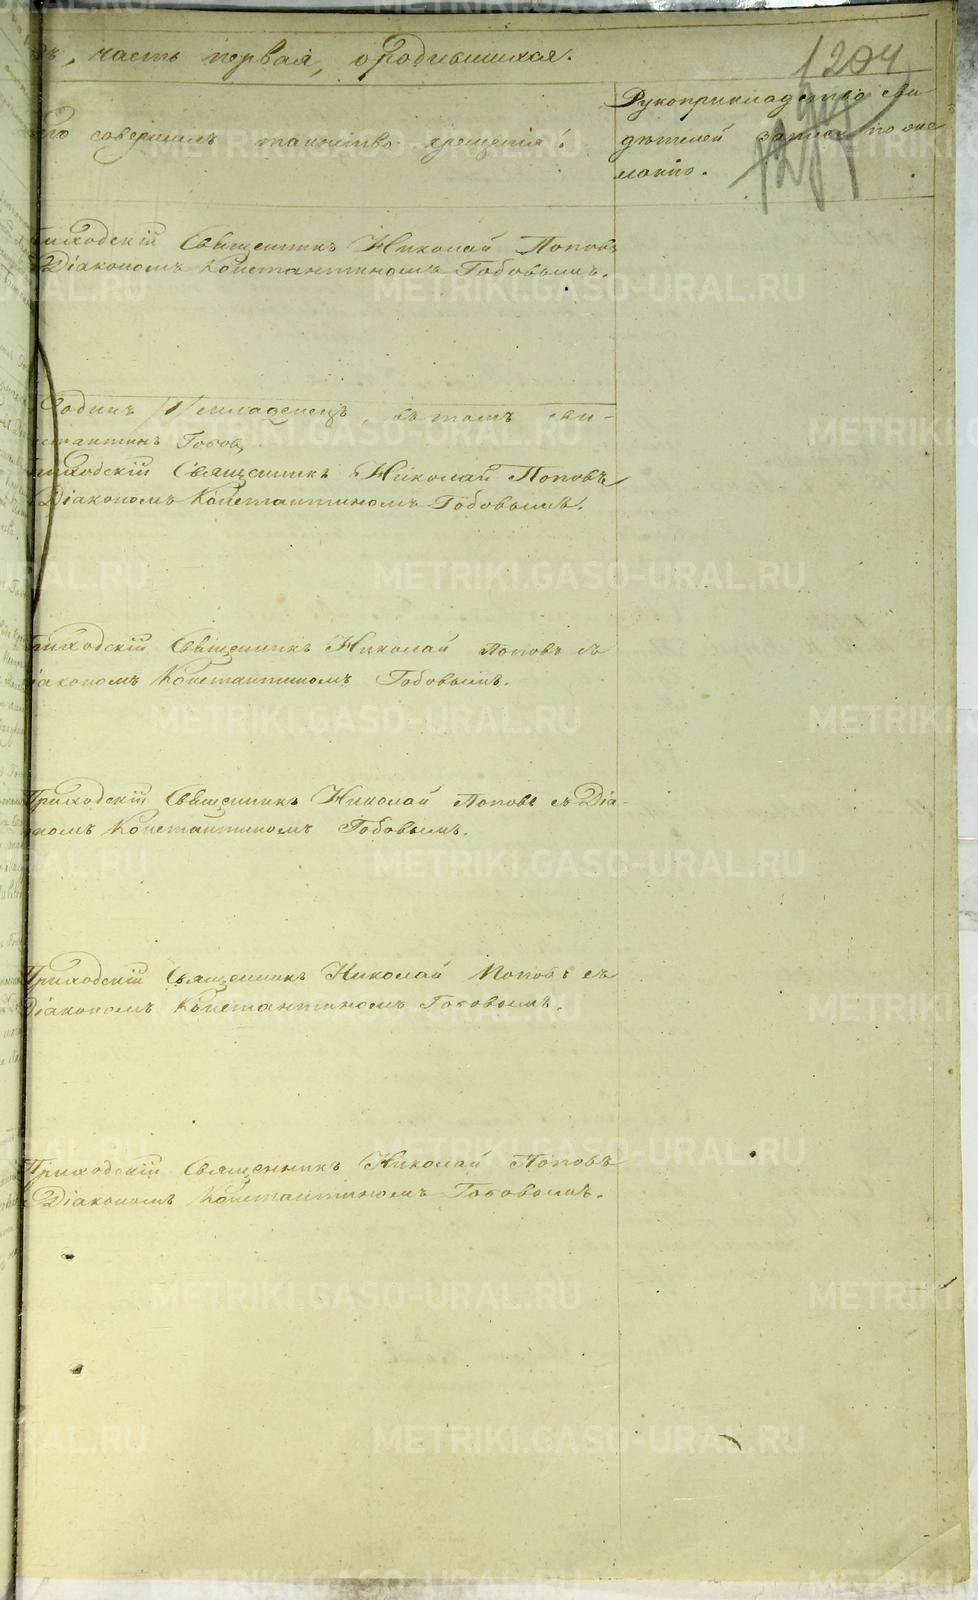 часть первая, о родившихся.
1204
Кто совершилъ таинство крещенія?
Рукоприкладство сви-
дѣтелей записи по же-
ланію.
Приходскій Священникъ Николай Поповъ
Діакономъ Константиномъ Гобовымъ.
младенецъ въ томъ сви-
Константинъ Гобовъ
Приходскій Священникъ Николай Поповъ
Діакономъ Константиномъ Гобовымъ.
Приходскій Священникъ Николай Поповъ съ
Діакономъ Константиномъ Гобовымъ.
Приходскій Священникъ Николай Поповъ съ Діа-
кономъ Константиномъ Гобовымъ.
Приходскій Священникъ Николай Поповъ съ
Діакономъ Константиномъ Гобовымъ.
Приходскій Священникъ Николай Поповъ
Діакономъ Константиномъ Гобовымъ.
METRIKI.GASO-URAL.RU